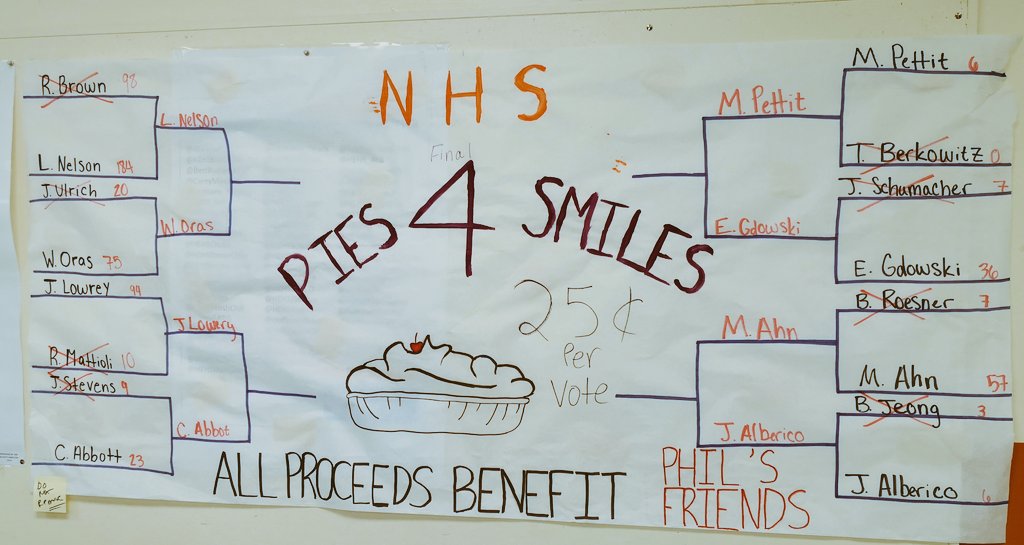 NHS
Final
PIES 4 SMILES
25¢
Per
Vote
R. Brown 98
L. Nelson 184
J. Ulrich 20
W. Oras 75
J. Lowrey 94
R. Mattioli 10
J. Stevens 9
C. Abbott 23
L. Nelson
W. Oras
J Lowery
C. Abbot
M. Pettit
E. Gdowski
M. Ahn
J. Alberico
M. Pettit 6
T. Berkowitz 0
J. Schumacher 7
E. Gdowski 36
B. Roesner 7
M. Ahn 57
B. Jeong 3
J. Alberico 6
ALL PROCEEDS BENEFIT PHIL'S
FRIENDS
DO
NOT